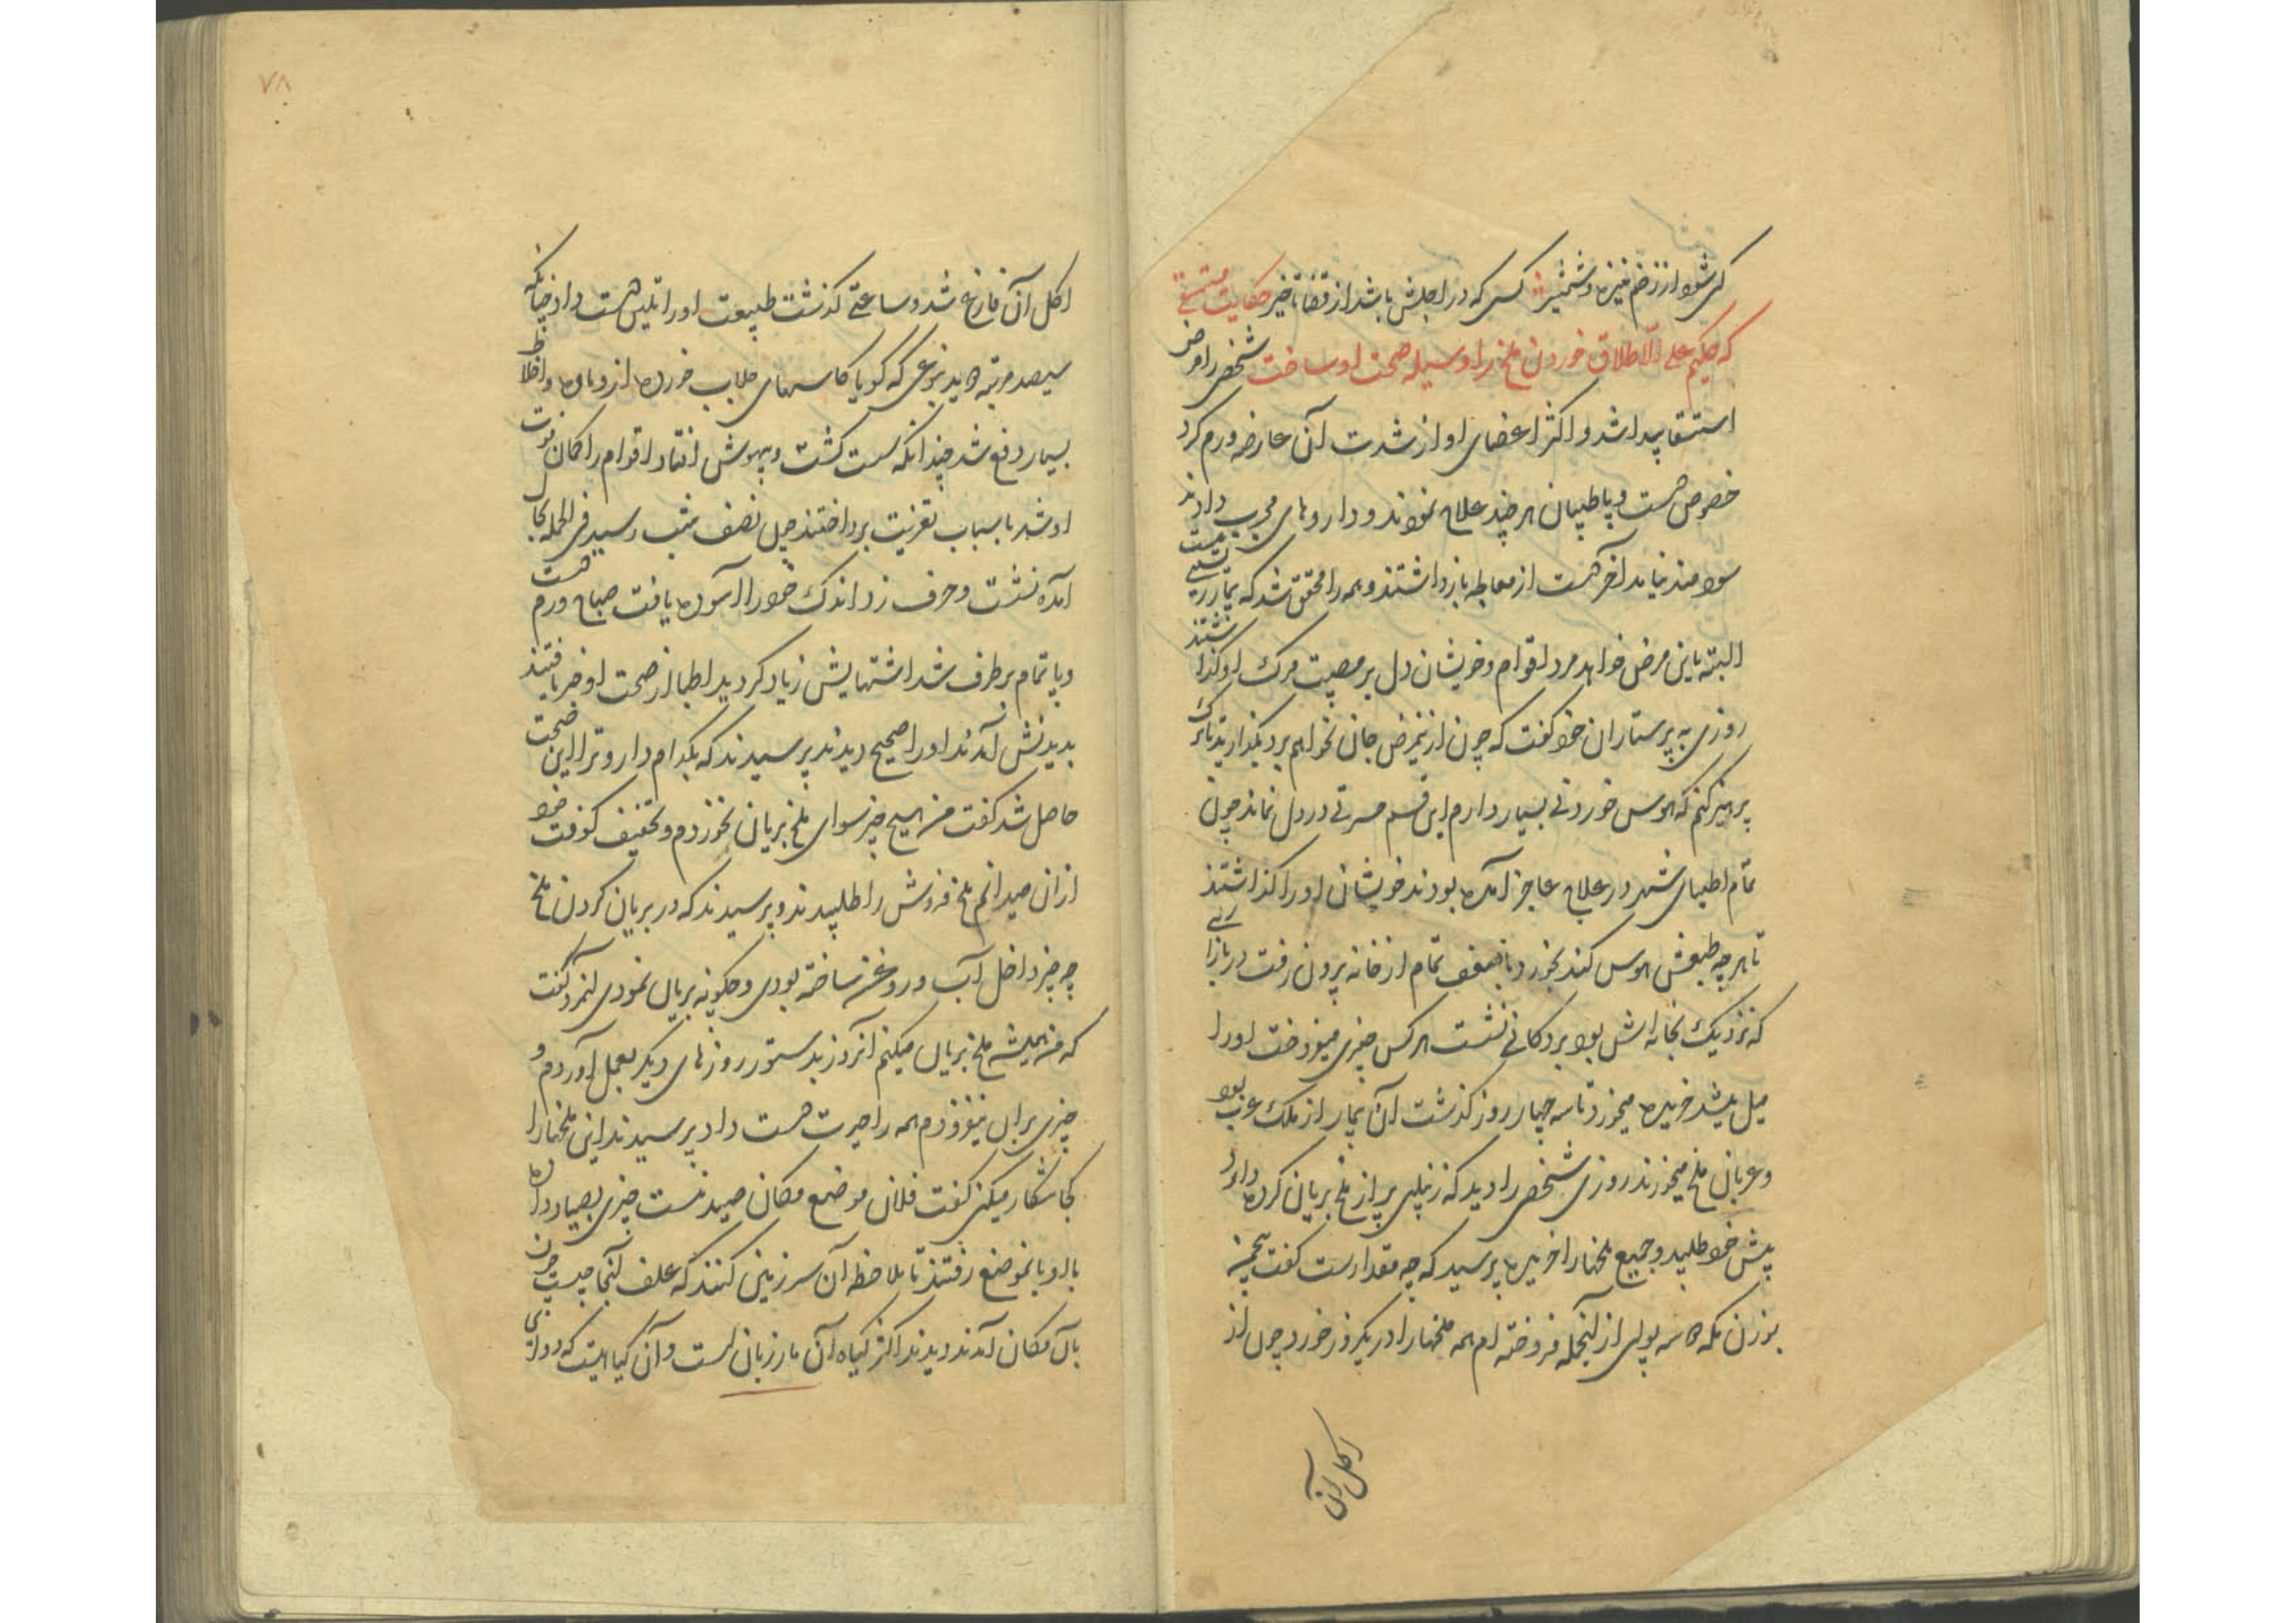 کی شود از زخم نیزه و شمشیر کسی که در اجلش باشد از قضا تاخیر حکایت مستسقی
که حکیم علی الاطلاق خوردن ملخ را وسیله صحت او ساخت شخصی را مرض
استسقا پیدا شد و اکثر اعضای او از شدت آن عارضه ورم کرد
خصوص دست و پا طبیبان هر چند علاج نمودند و داروهای مجرب دادند
سودمند نیامد آخر دست از معالجه بازداشتند و همه را محقق شد که بیمار زیستنی نیست
البته باین مرض خواهد مرد اقوام و خویشان دل بر مصیبت مرک او گذاشتند
روزی به پرستاران خود کفت که چون ازینمرض جان نخواهم برد بگذارید تا ترک
پرهیز کنم که هوس خوردنی بسیار دارم این قسم حسرتی در دل نماند چون
تمام اطبای شهر در علاج عاجز آمده بودند خویشان او را گذاشتند
تا هر چه طبعش هوس کند بخورد با ضعف تمام از خانه بیرون رفت در بازاری
که نزدیک بخانه اش بود بر دکانی نشست هر کس چیزی میفروخت او را
میل میشد خریده میخورد تا سه چهار روز گذشت آن بیمار از ملک عرب بود
و عربان ملخ میخورند روزی شخصی را دید که زنبیلی پر از ملخ بریان کرده دارد
پیش خود طلبید و جمیع ملخها را خریده پرسید که چه مقدارست کفت پنجمن
بوزن مکه ده سه پولی از آنجمله فروخته ام همه ملخها را در یکروز خورد چون از
اکل آن
۷۸
اکل آن فارغ شد و ساعتی گذشت طبیعت او را تلیین دست داد چنانکه
سیصد مرتبه دوید بنوعی که گویا کاسهای جلاب خورده از دماء و اخلاط
بسیار دفع شد چندانکه سست کشت و بیهوش افتاد اقوام را گمان فوت
او شد باسباب تعزیت پرداختند چون نصف شب رسید فی الجمله بحال
آمده نشست و حرف زد اندک خود را آسوده یافت صباح ورم دست
و پا تمام برطرف شد اشتهایش زیاد گردید اطبا از صحت او خبر یافتند
بدیدنش آمدند او را صحیح دیدند پرسیدند که بکدام دارو ترا این صحت
حاصل شد کفت من هیچ چیز سوای ملخ بریان نخوردم و تخفیف کوفت خود
از ان میدانم ملخ فروش را طلبیدند و پرسیدند که در بریان کردن ملخ
چه چیز داخل آب و روغن ساخته بودی و چگونه بریان نمودی آنمرد گفت
که من همیشه ملخ بریان میکنم آنروز بدستور روزهای دیگر بعمل آوردم و
چیزی بران نیفزودم همه را حیرت دست داد پرسیدند این ملخها را
کجا شکار میکنی کفت فلان موضع مکان صید منست چیزی بصیاد داده
با او بانموضع رفتند تا ملاحظه آن سرزمین کنند که علف آنجا چیست چون
بان مکان آمدند دیدند اکثر گیاه آن مازریان است و آن گیاهیست که دوای